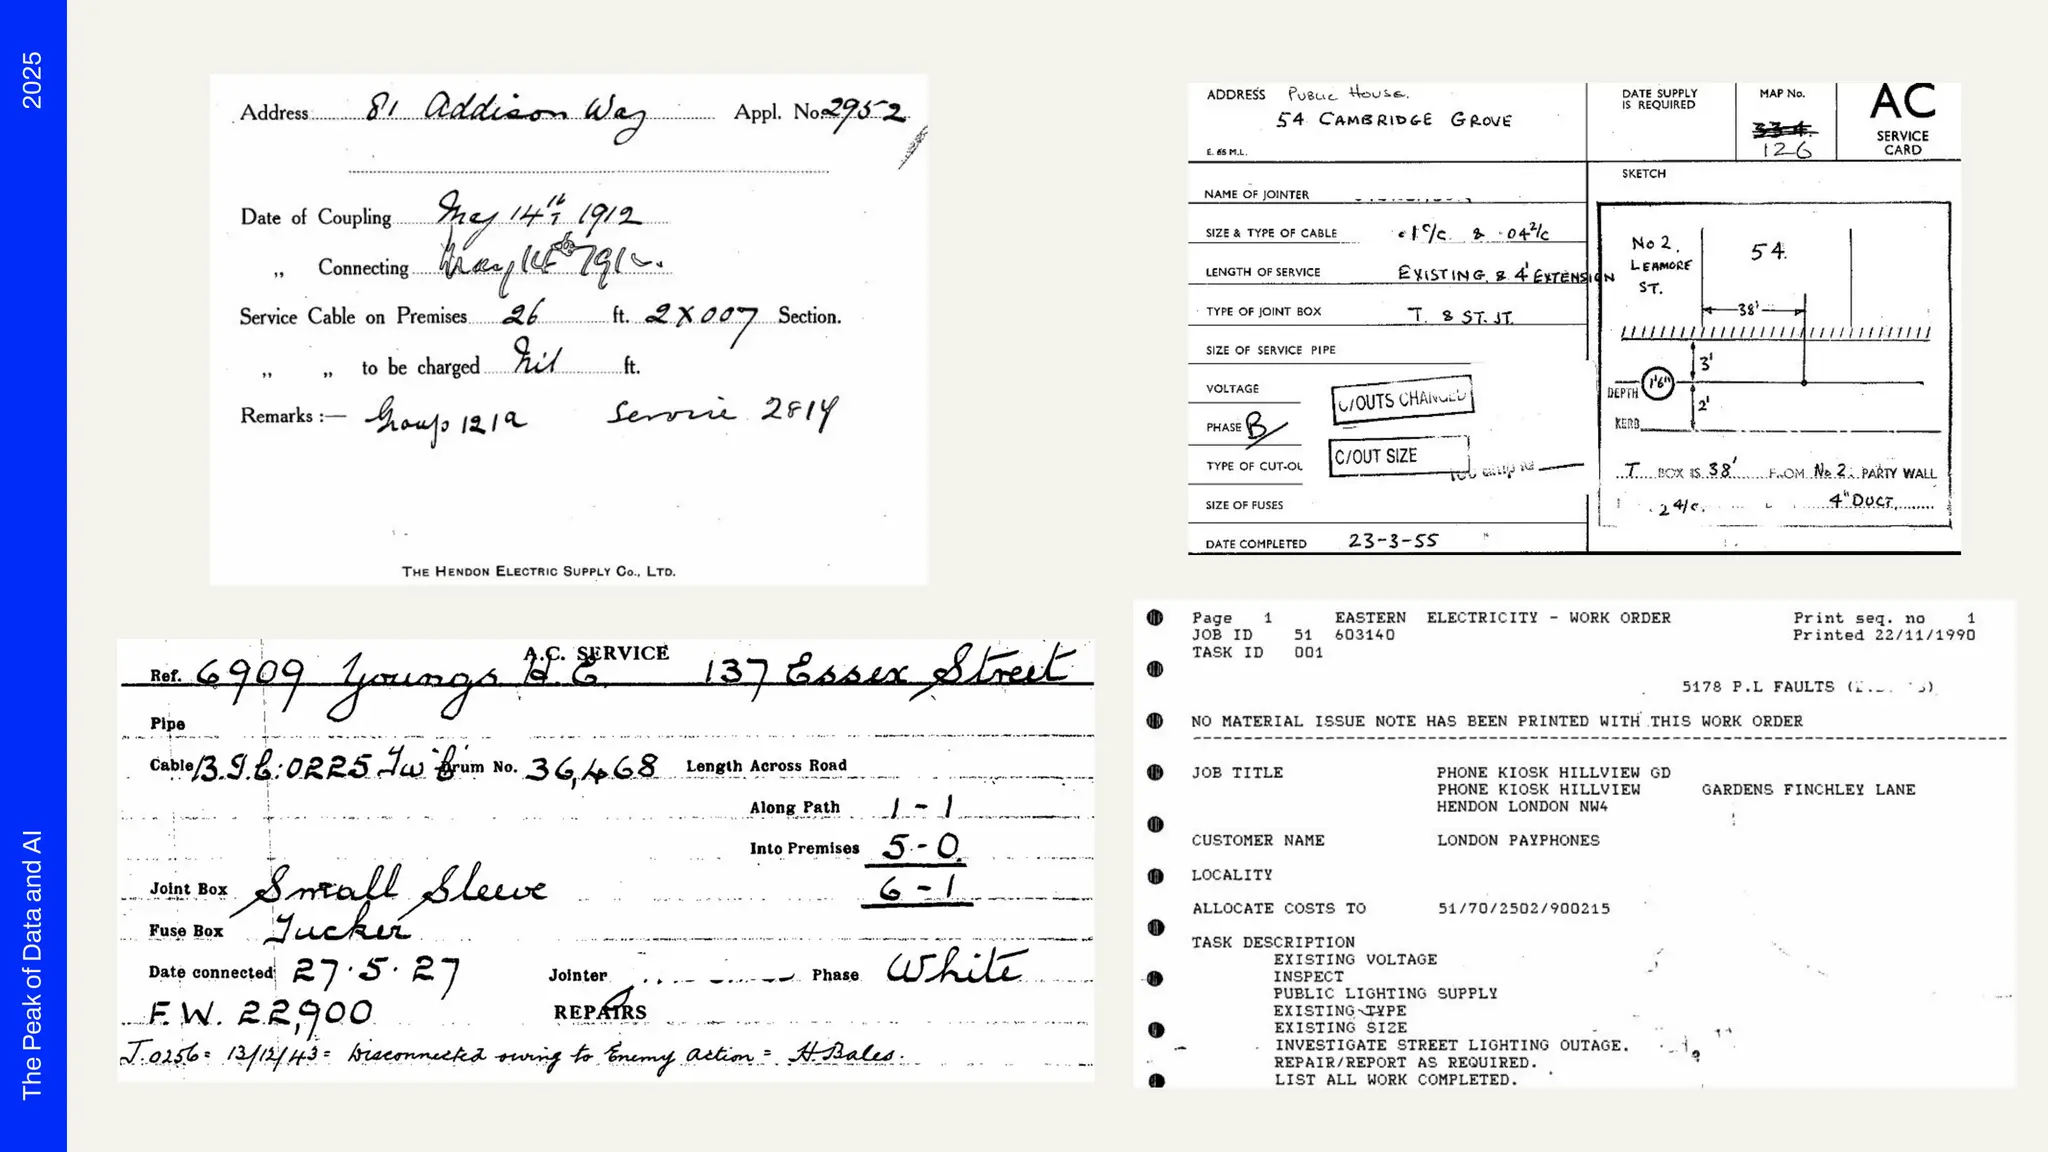 2025
The Peak of Data and AI
Address 81 Addison Way Appl. No. 2952
Date of Coupling May 14th 1912
„ Connecting May 14th 1912.
Service Cable on Premises 26 ft. 2 X 007 Section.
„ „ to be charged Nil ft.
Remarks :— Group 121a Service 2814
THE HENDON ELECTRIC SUPPLY CO., LTD.
ADDRESS PUBLIC HOUSE.
54 CAMBRIDGE GROVE
E. 65 M.L.
DATE SUPPLY
IS REQUIRED
MAP No.
334.
126
AC
SERVICE
CARD
NAME OF JOINTER
SIZE & TYPE OF CABLE .1 C/C & .04 2/C
LENGTH OF SERVICE EXISTING & 4' EXTENSION
TYPE OF JOINT BOX T. & ST. JT.
SIZE OF SERVICE PIPE
VOLTAGE
C/OUTS CHANGED
PHASE B
C/OUT SIZE
TYPE OF CUT-OU
SIZE OF FUSES
DATE COMPLETED 23-3-55
SKETCH
No 2.
LEAMORE
ST.
54.
38'
3'
DEPTH 1'6"
2'
KERB
T BOX IS 38' FROM No 2. PARTY WALL
2 4/C. 4" DUCT
A.C. SERVICE
Ref. 6909 Youngs H. E. 137 Essex Street
Pipe
Cable B.I.C. .0225 Tw'b' Drum No. 36,468 Length Across Road
Along Path 1 - 1
Into Premises 5 - 0
6 - 1
Joint Box Small Sleeve
Fuse Box Tucker
Date connected 27.5.27 Jointer Phase White
F.W. 22,900 REPAIRS
J.0256 = 13/12/43 = Disconnected owing to Enemy action = H. Bales.
Page 1 EASTERN ELECTRICITY - WORK ORDER Print seq. no 1
JOB ID 51 603140 Printed 22/11/1990
TASK ID 001
5178 P.L FAULTS
NO MATERIAL ISSUE NOTE HAS BEEN PRINTED WITH THIS WORK ORDER
JOB TITLE PHONE KIOSK HILLVIEW GD
PHONE KIOSK HILLVIEW GARDENS FINCHLEY LANE
HENDON LONDON NW4
CUSTOMER NAME LONDON PAYPHONES
LOCALITY
ALLOCATE COSTS TO 51/70/2502/900215
TASK DESCRIPTION
EXISTING VOLTAGE
INSPECT
PUBLIC LIGHTING SUPPLY
EXISTING TYPE
EXISTING SIZE
INVESTIGATE STREET LIGHTING OUTAGE.
REPAIR/REPORT AS REQUIRED.
LIST ALL WORK COMPLETED.